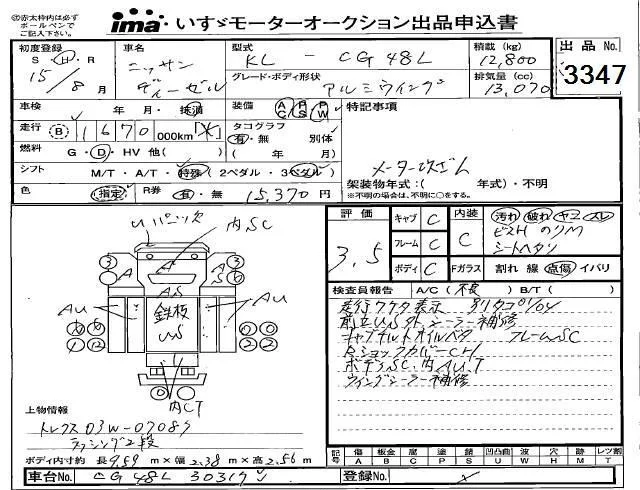 ①赤太枠内は必ず
ボールペンで
ご記入下さい。
ima いすゞモーターオークション出品申込書
初度登録 車名 型式 積載 (kg) 出品 No.
S・H・R ニッサン KL - CG48L 12,800
15/8月 ディーゼル グレード・ボディ形状 排気量 (cc) 3347
アルミウイング 13,070
車検 年・月・抹消 装備 A C P S P W 特記事項
走行 B 1670 000km タコグラフ
有・無 別体
燃料 G・D・HV 他( ) ( 年 )
シフト M/T・A/T・特殊 (2ペダル・3ペダル) メーター改ざん
架装物年式:( 年式)・不明
色 (指定) R券 有・無 15,370円 ※不明の場合は、不明に○をする。
評価 キャブ C 内装 汚れ 破れ ヤコ スレ
3.5 フレーム C C ビスH のりM
シートヘタリ
ボディ C Fガラス 割れ 線 点傷 イバリ
検査員報告 A/C( 不良 ) B/T( )
内SC
AU 鉄板 AU
US
内CT
ボディSC.内AU.T
ウイングシーラー補修
フレームSC
上物情報
トレクス 03W-07089
ラッシング2段
ボディ内寸約 長 9.59 m×幅 2.38 m×高 2.56 m
記号 傷 A 板金 B 腐 C 塗 P 錆 S 凹凸曲 U 波 W 穴 H 跡 M レツ割 T
車台No. CG48L 30317 登録No.